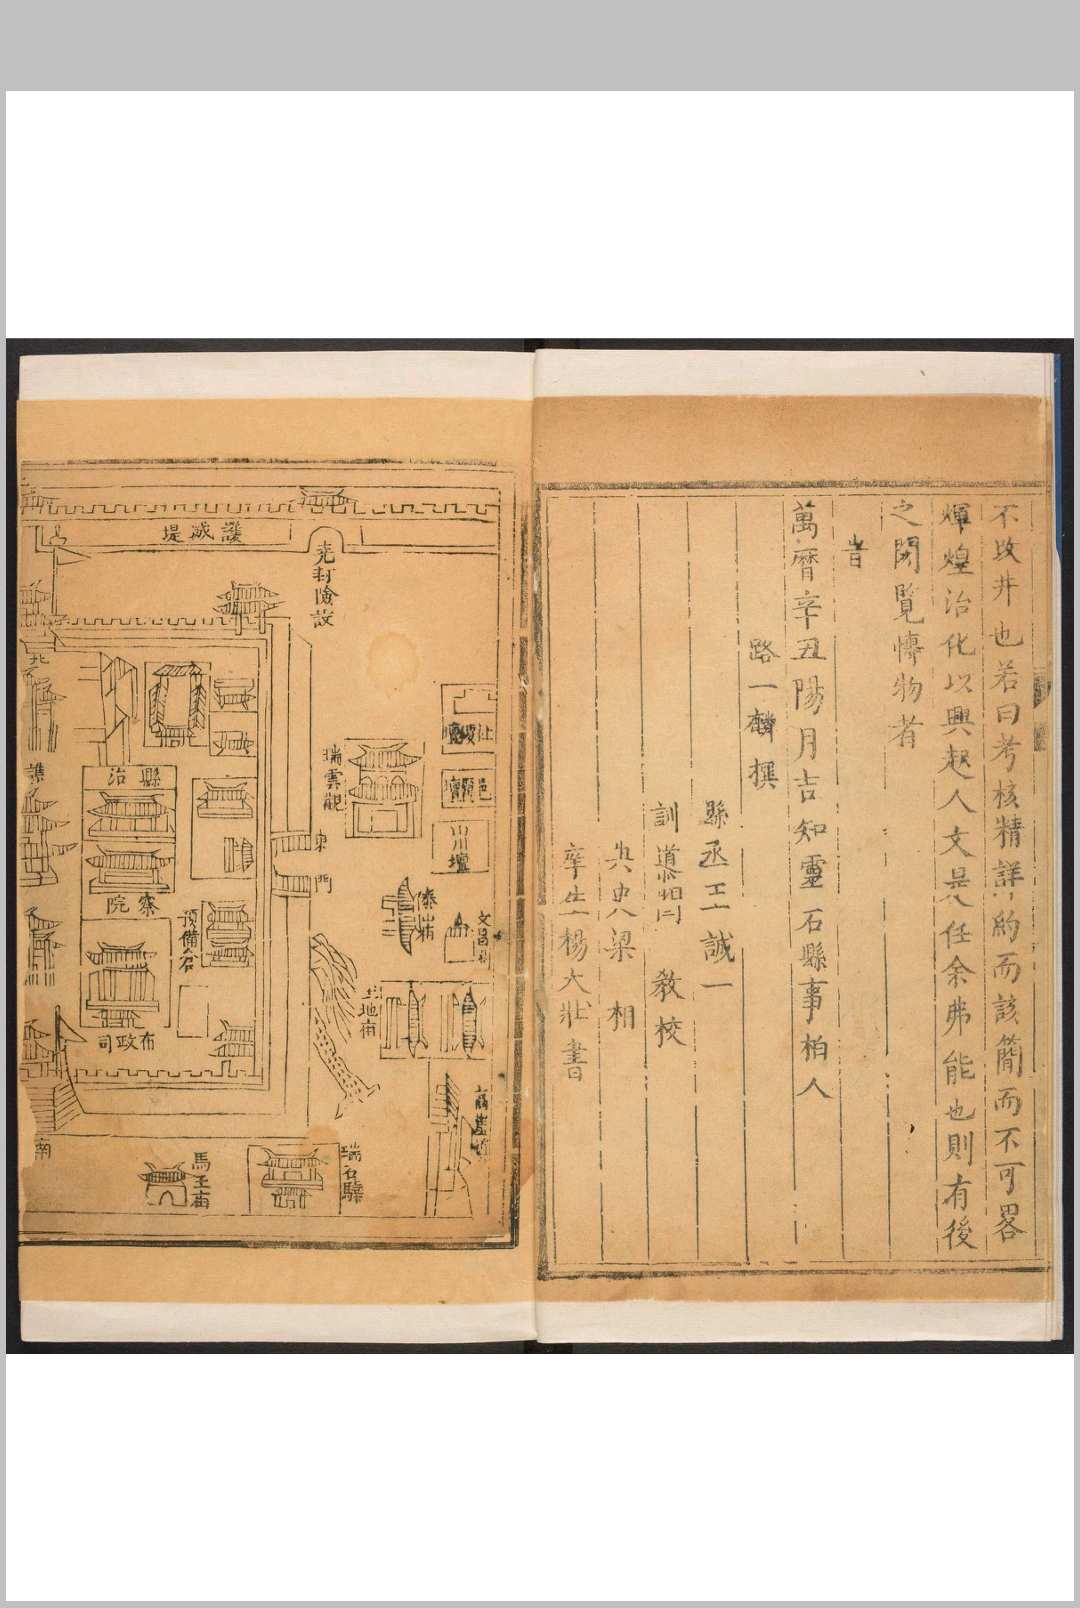 不改井也若曰考核精詳約而該簡而不可畧
輝煌治化以興起人文是任余弗能也則有後
之閎覽慱物者
旹
萬曆辛丑陽月吉知靈石縣事柏人
路一麟撰
縣丞王誠一
訓
教校
典史梁相
庠生楊大壯書
護城堤
堯封險設
北
瑞雲觀
縣治
察院
預備倉
布政司
東門
社稷壇
邑厲壇
山川壇
文昌
土地廟
瑞石驛
馬王廟
南